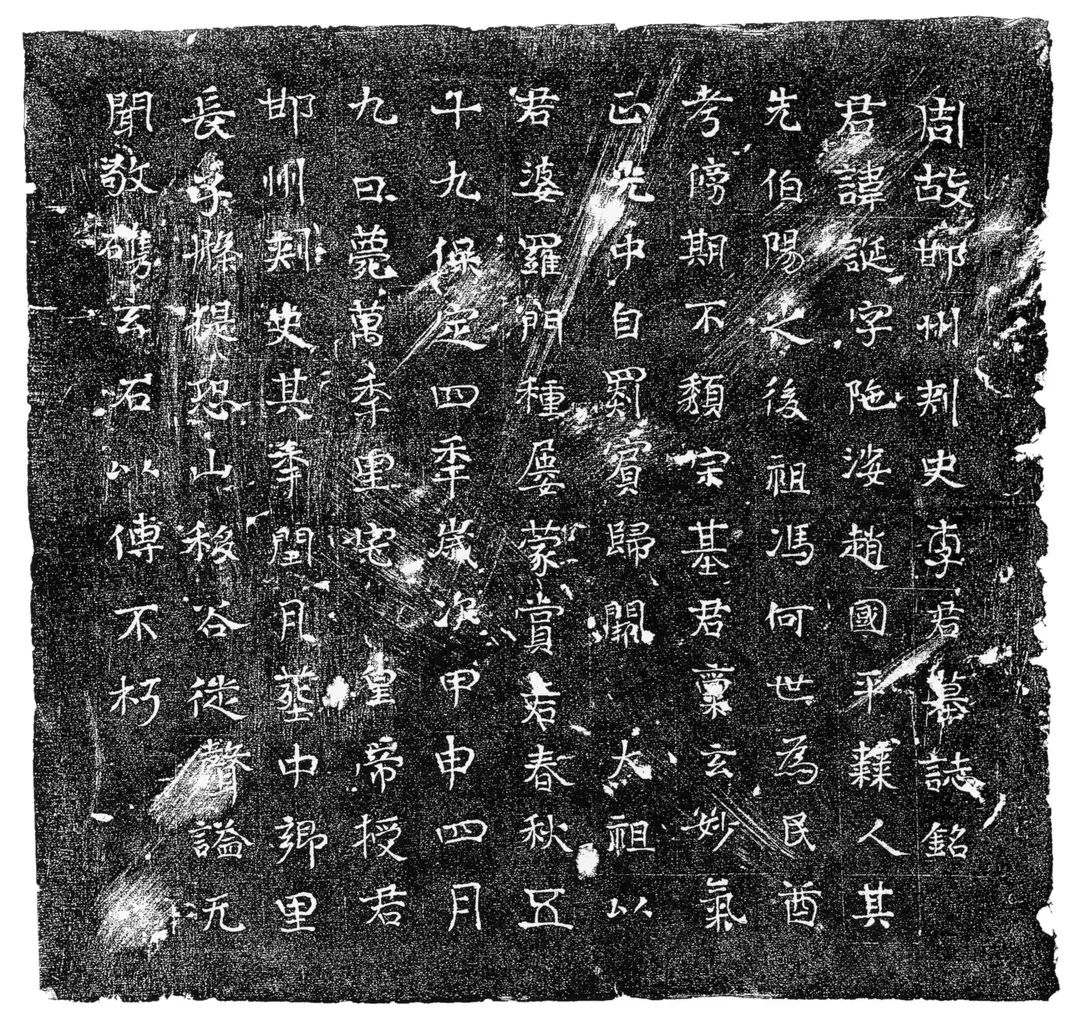 周故邯州刺史李君墓誌銘
君諱誕字陁娑趙國平棘人其
先伯陽之後祖馮何世為民酋
考傍期不頹宗基君稟玄妙氣
正光中自罽賓歸闕　太祖以
君婆羅門種屢蒙賞君春秋五
十九保定四年歲次甲申四月
九日薨萬年里宅　皇帝授君
邯州刺史其年閏月葬中鄉里
長子槃提恐山移谷徙聲謚无
聞敬鐫玄石以傳不朽